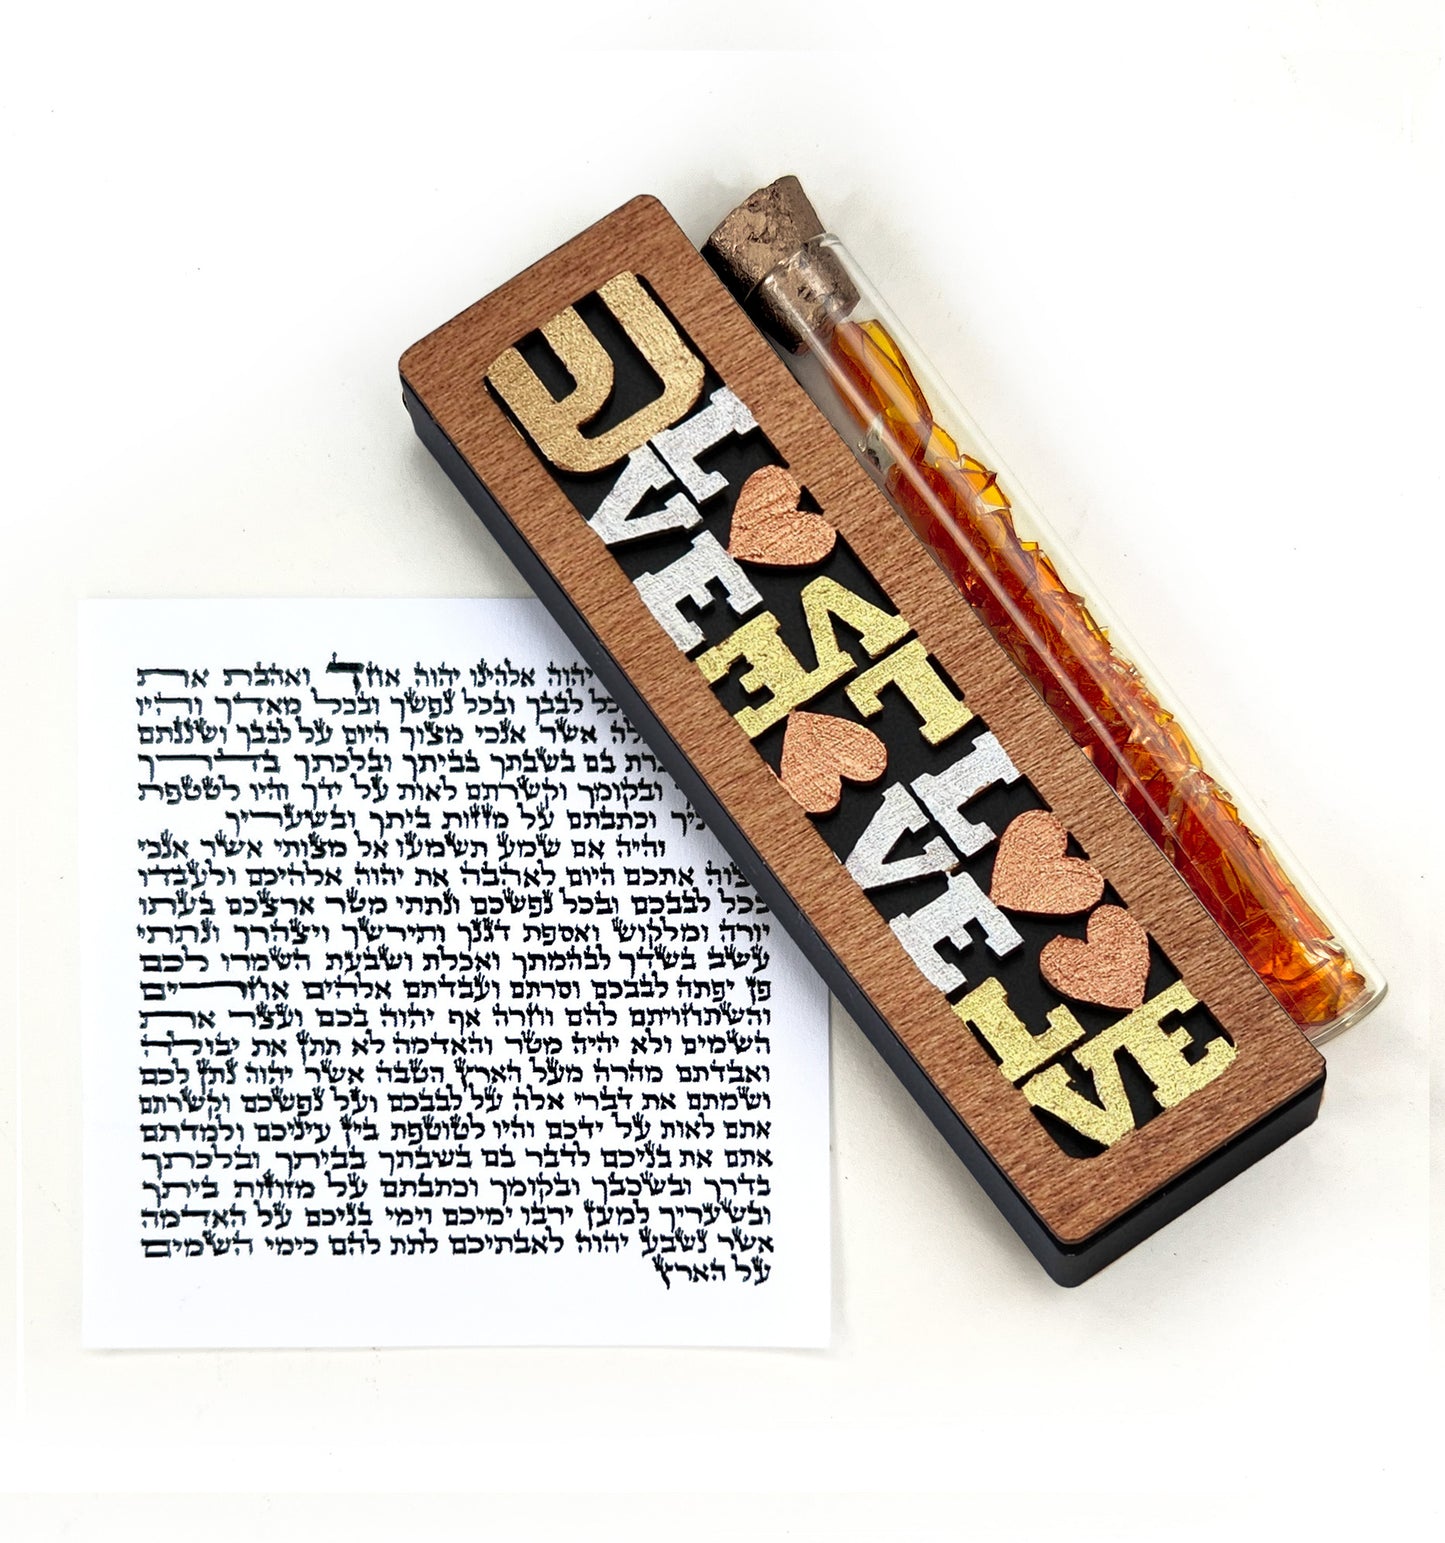 יהוה אלהינו יהוה אחד ואהבת את
כל לבבך ובכל נפשך ובכל מאדך והיו
לה אשר אנכי מצוך היום על לבבך ושננתם
רת בם בשבתך בביתך ובלכתך בדרך
ובקומך וקשרתם לאות על ידך והיו לטטפת
יך וכתבתם על מזזות ביתך ובשעריך
והיה אם שמע תשמעו אל מצותי אשר אנכי
וה אתכם היום לאהבה את יהוה אלהיכם ולעבדו
בכל לבבכם ובכל נפשכם ונתתי מטר ארצכם בעתו
יורה ומלקוש ואספת דגנך ותירשך ויצהרך ונתתי
עשב בשדך לבהמתך ואכלת ושבעת השמרו לכם
פן יפתה לבבכם וסרתם ועבדתם אלהים אחרים
והשתחויתם להם וחרה אף יהוה בכם ועצר את
השמים ולא יהיה מטר והאדמה לא תתן את יבולה
ואבדתם מהרה מעל הארץ הטבה אשר יהוה נתן לכם
ושמתם את דברי אלה על לבבכם ועל נפשכם וקשרתם
אתם לאות על ידכם והיו לטוטפת בין עיניכם ולמדתם
אתם את בניכם לדבר בם בשבתך בביתך ובלכתך
בדרך ובשכבך ובקומך וכתבתם על מזוזות ביתך
ובשעריך למען ירבו ימיכם וימי בניכם על האדמה
אשר נשבע יהוה לאבתיכם לתת להם כימי השמים
על הארץ
ש
L♥
VE
L♥
VE
L♥
VE
L♥
VE